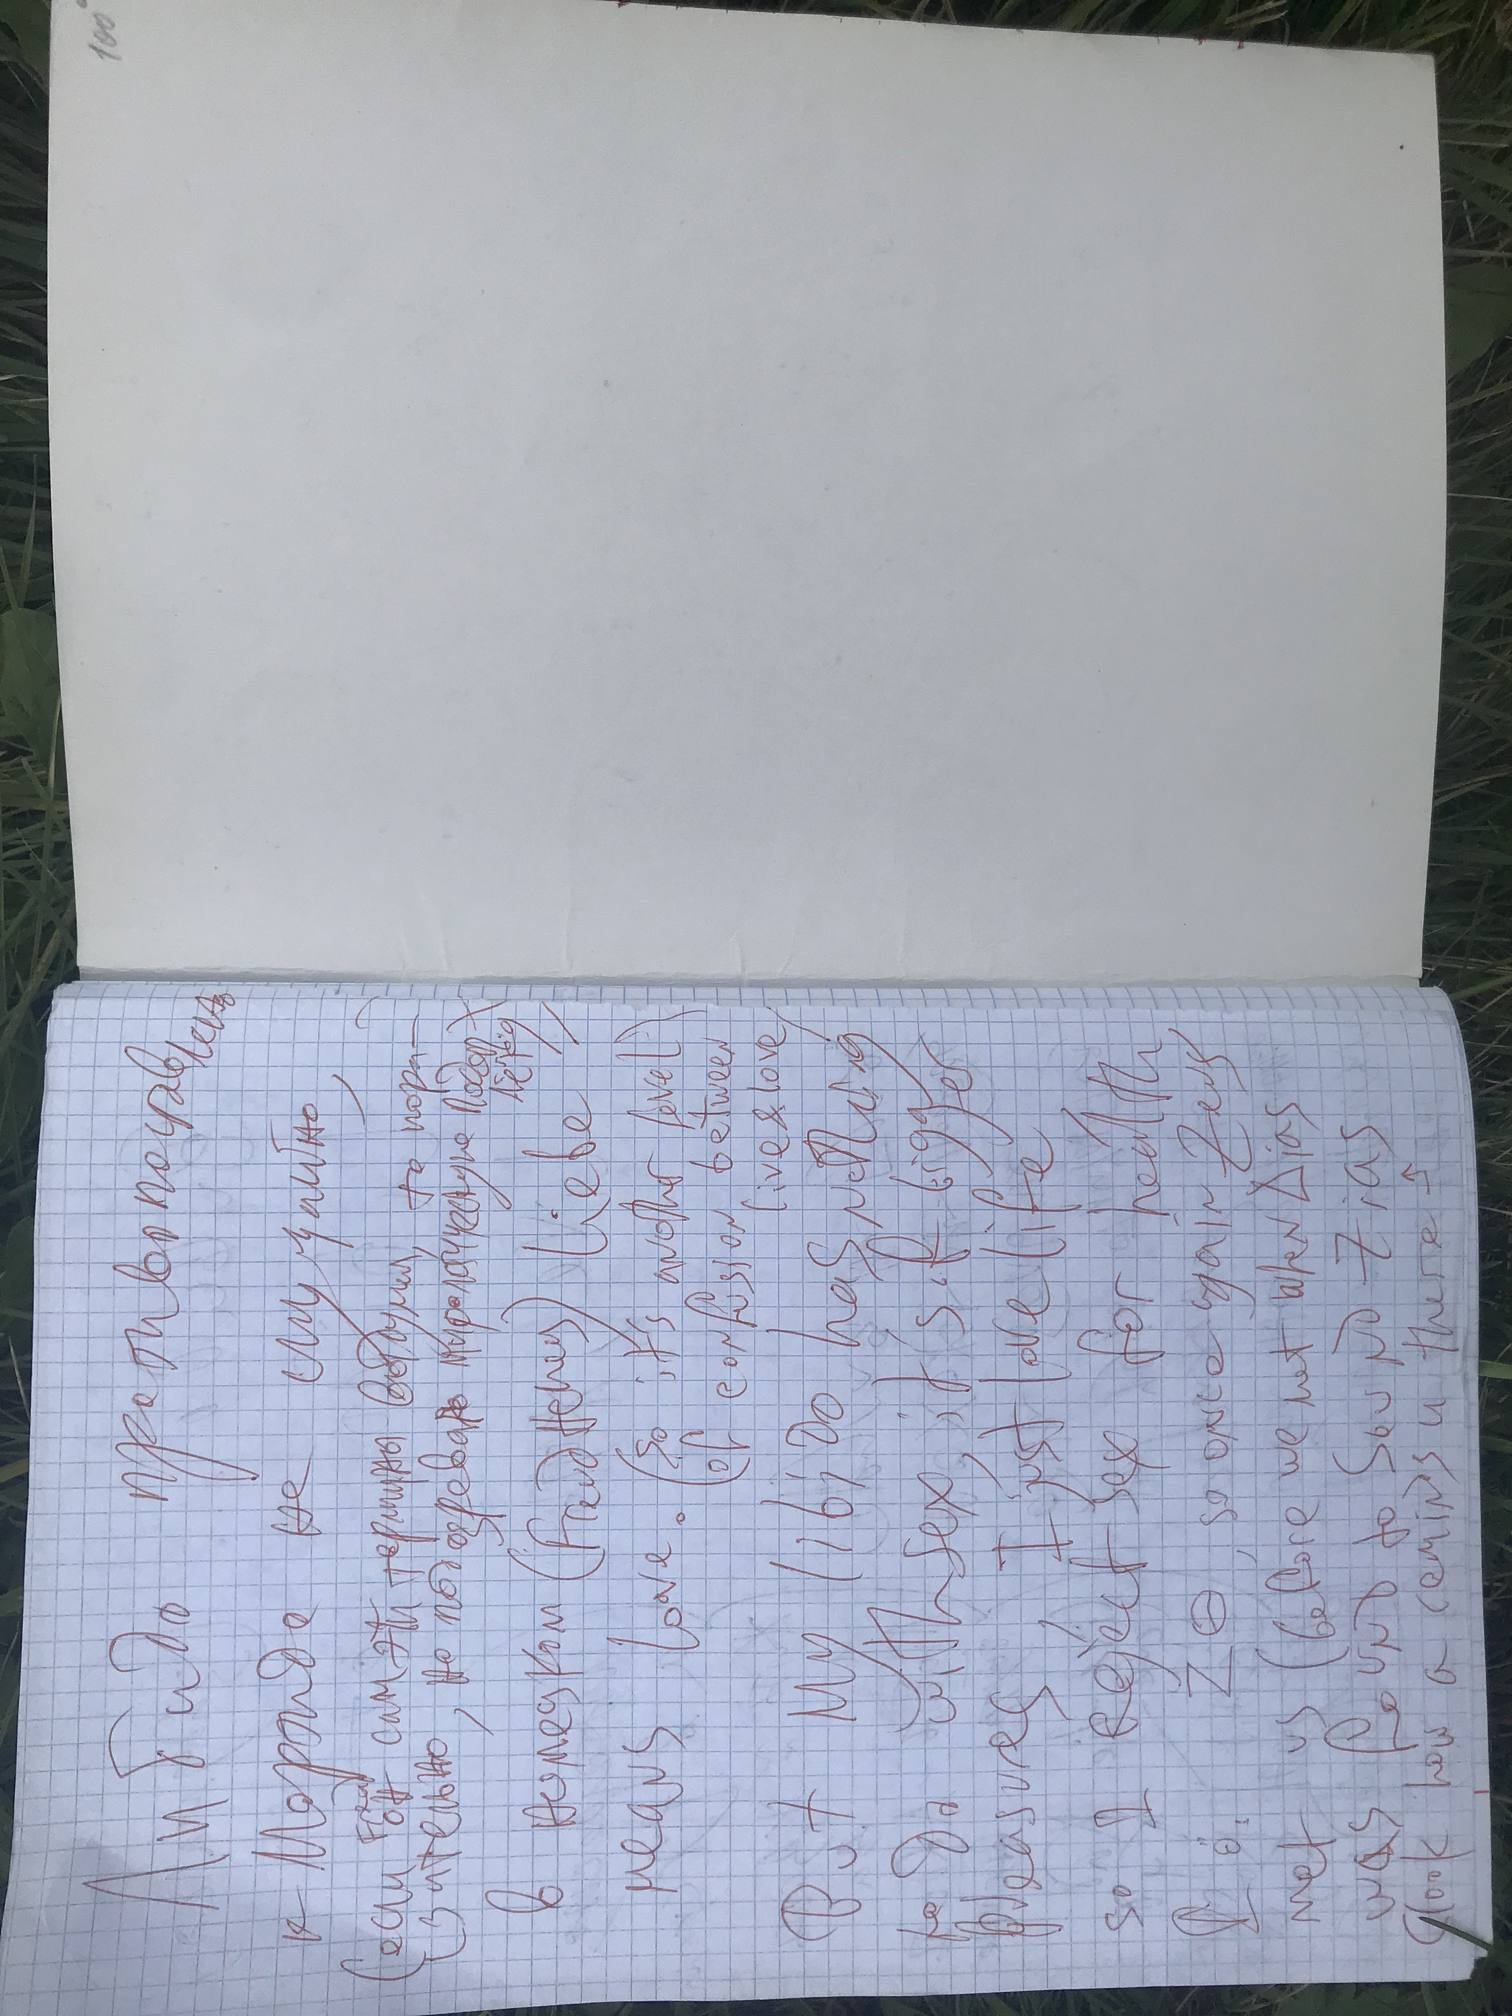 Либидо противопоставленa
к Мортидо не случайно,
(если Freud он сам эти термины выдумал, то пора-
зительно, не подозревая мироточащую
в немецком (Freud Heney) Liebe
means love. (so it's another level)
(of confusion between
live & love)
But my libido has nothing
to Do with sex, it's a bigger
pleasures, I just love life
so I reject sex for health
Z Θ, so once again Zeus
met us (before we met when Δias
was found to sound Zias
(look how a coming is there →
100